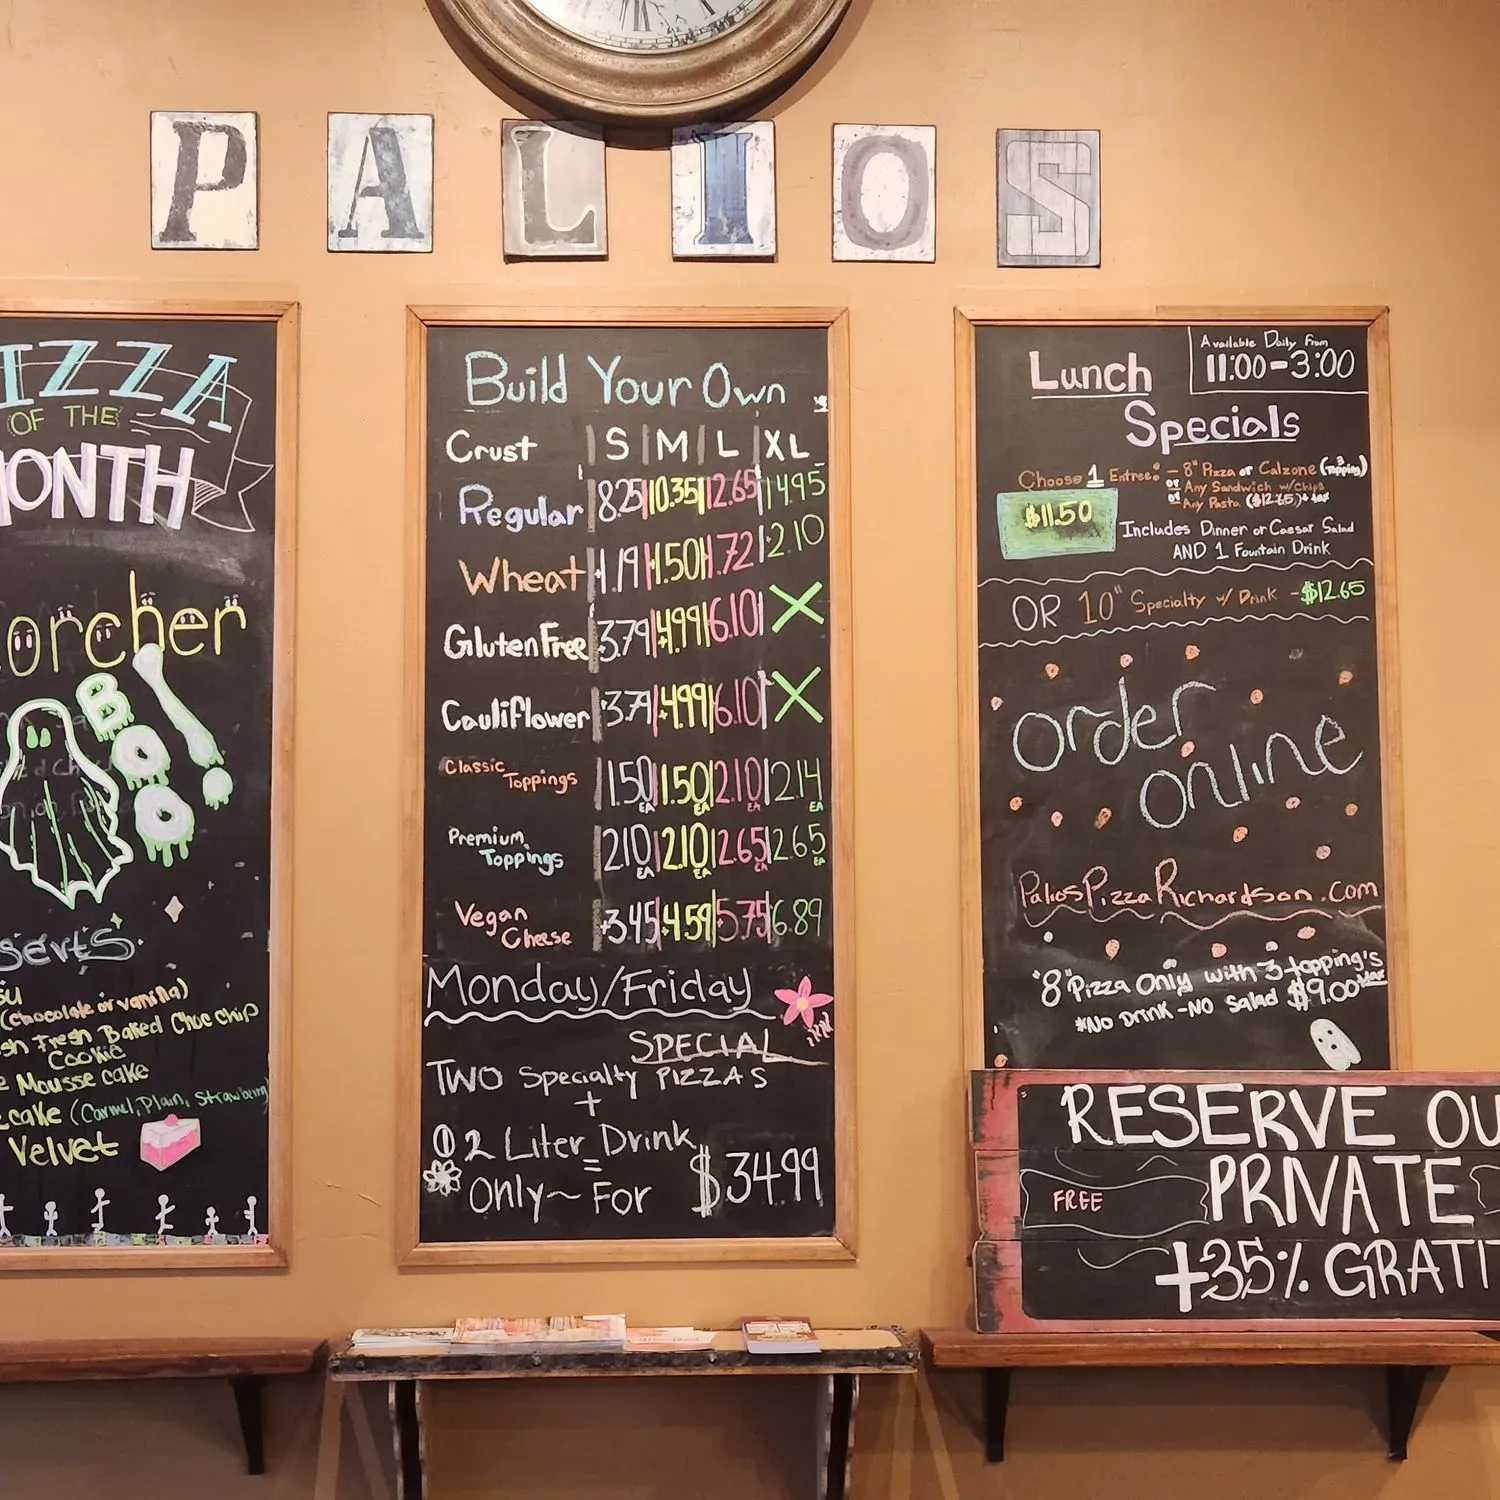 PALIOS
IZZA
OF THE
MONTH
orcher
BOO!
serts
su
(chocolate or vanilla)
sh Fresh Baked Choc chip
Cookie
e Mousse cake
ecake (Carmel, Plain, Strawberry)
Velvet
Build Your Own
Crust | S | M | L | XL
Regular 8.25 | 10.35 | 12.65 | 14.95
Wheat +1.19 | +1.50 | +1.72 | +2.10
Gluten Free +3.79 | +4.99 | +6.10 | X
Cauliflower +3.79 | +4.99 | +6.10 | X
Classic Toppings | 1.50 EA | 1.50 EA | 2.10 EA | 2.14 EA
Premium Toppings | 2.10 EA | 2.10 EA | 2.65 EA | 2.65 EA
Vegan Cheese +3.45 | +4.59 | +5.75 | 6.89
Monday/Friday
SPECIAL
TWO Specialty PIZZAS
+
① 2 Liter Drink
=
Only~ For $34.99
Available Daily From
11:00-3:00
Lunch
Specials
Choose 1 Entree: - 8" Pizza or Calzone (3 Topping)
or Any Sandwich w/Chips
or Any Pasta ($12.65)+tax
$11.50
Includes Dinner or Caesar Salad
AND 1 Fountain Drink
OR 10" Specialty w/ Drink - $12.65
order
online
PaliosPizzaRichardson.com
*8" Pizza Only with 3 topping's
*No Drink - NO Salad $9.00+tax
RESERVE OU
FREE
PRIVATE
+35% GRATI